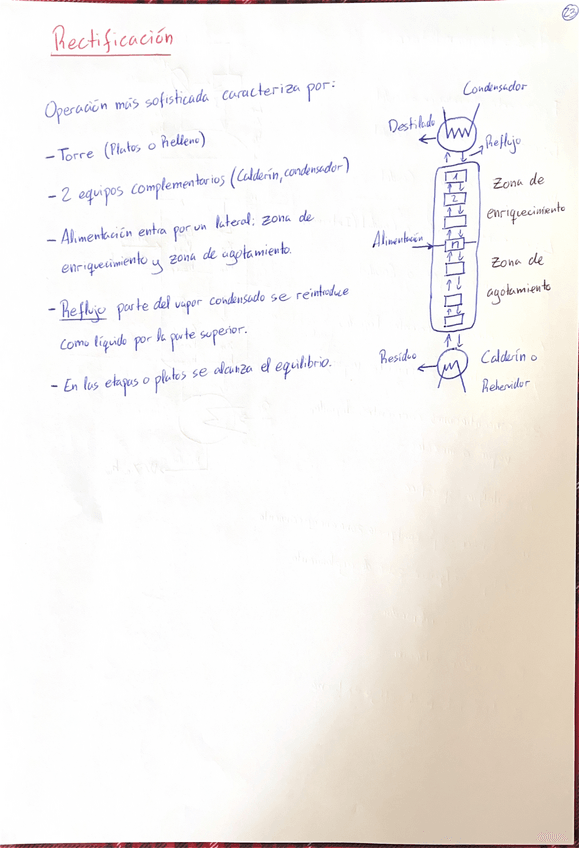 23
Rectificación
Operación más sofisticada caracteriza por:
- Torre (Platos o Relleno)
- 2 equipos complementarios (Calderín, condensador)
- Alimentación entra por un lateral: zona de
enriquecimiento y zona de agotamiento.
- Reflujo parte del vapor condensado se reintroduce
como líquido por la parte superior.
- En las etapas o platos se alcanza el equilibrio.
Condensador
Destilado
Reflujo
1
2
Zona de
enriquecimiento
Alimentación
m
Zona de
agotamiento
Residuo
Calderín o
Rehervidor